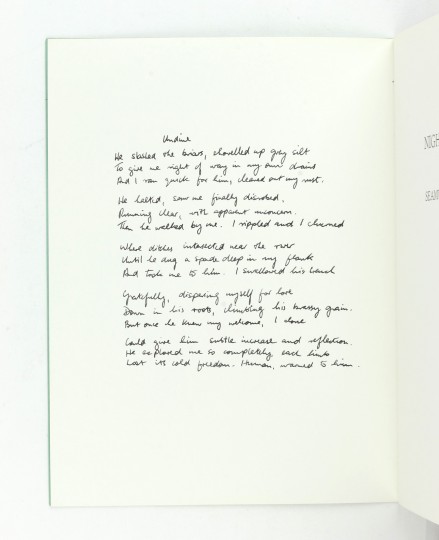 Undine
He slashed the briars, shovelled up grey silt
To give me right of way in my own drains
And I ran quick for him, cleaned out my rust.
He halted, saw me finally disrobed,
Running clear, with apparent unconcern.
Then he walked by me. I rippled and I churned
Where ditches intersected near the river
Until he dug a spade deep in my flank
And took me to him. I swallowed his trench
Gratefully, dispersing myself for love
Down in his roots, climbing his brassy grain.
But once he knew my welcome, I alone
Could give him subtle increase and reflection.
He explored me so completely, each limb
Lost its cold freedom. Human, warmed to him.
NIGH
SEAM